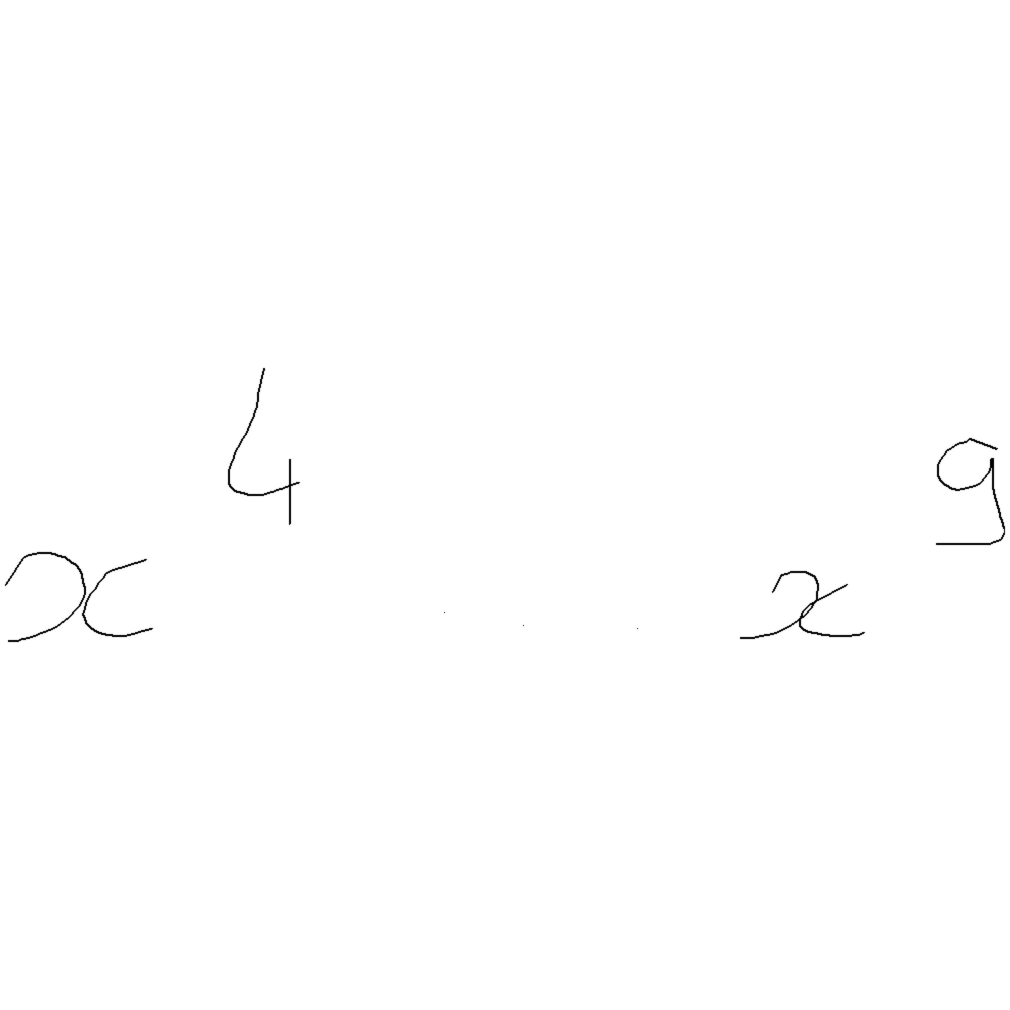 x⁴ ... x⁹